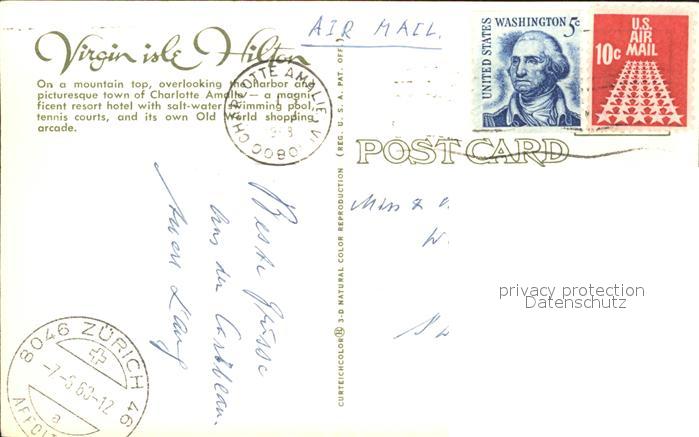 Virgin isle Hilton
On a mountain top, overlooking the harbor and
picturesque town of Charlotte Amalie — a magni-
ficent resort hotel with salt-water swimming pool,
tennis courts, and its own Old World shopping
arcade.
AIR MAIL.
CHARLOTTE AMALIE, VI 00800
UNITED STATES
WASHINGTON 5c
U.S.
AIR
MAIL
10c
POST CARD
CURTEICHCOLOR® 3-D NATURAL COLOR REPRODUCTION (REG. U.S.A. PAT. OFF.)
Miss
Beste Grüsse
aus der Caribbean.
8046 ZÜRICH 46
a
AFFOLT
privacy protection
Datenschutz